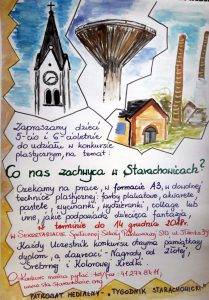 Zapraszamy dzieci
5-cio i 6-cioletnie
do udziału w konkursie
plastycznym, na temat:
Co nas zachwyca w Starachowicach?
Czekamy na prace, w formacie A3, w dowolnej
technice plastycznej: farby plakatowe, akwarele
pastele, wycinanki, wydzieranki, collage lub
inne, jakie podpowiada dziecięca fantazja,
w terminie do 14 grudnia 2017r.
w Sekretariacie
Każdy Uczestnik konkursu otrzyma pamiątkowy
dyplom, a laureaci - Nagrody od Złotej,
Srebrnej i Kolorowej Kredki.
O konkurs można pytać
PATRONAT MEDIALNY - TYGODNIK STARACHOWICKI